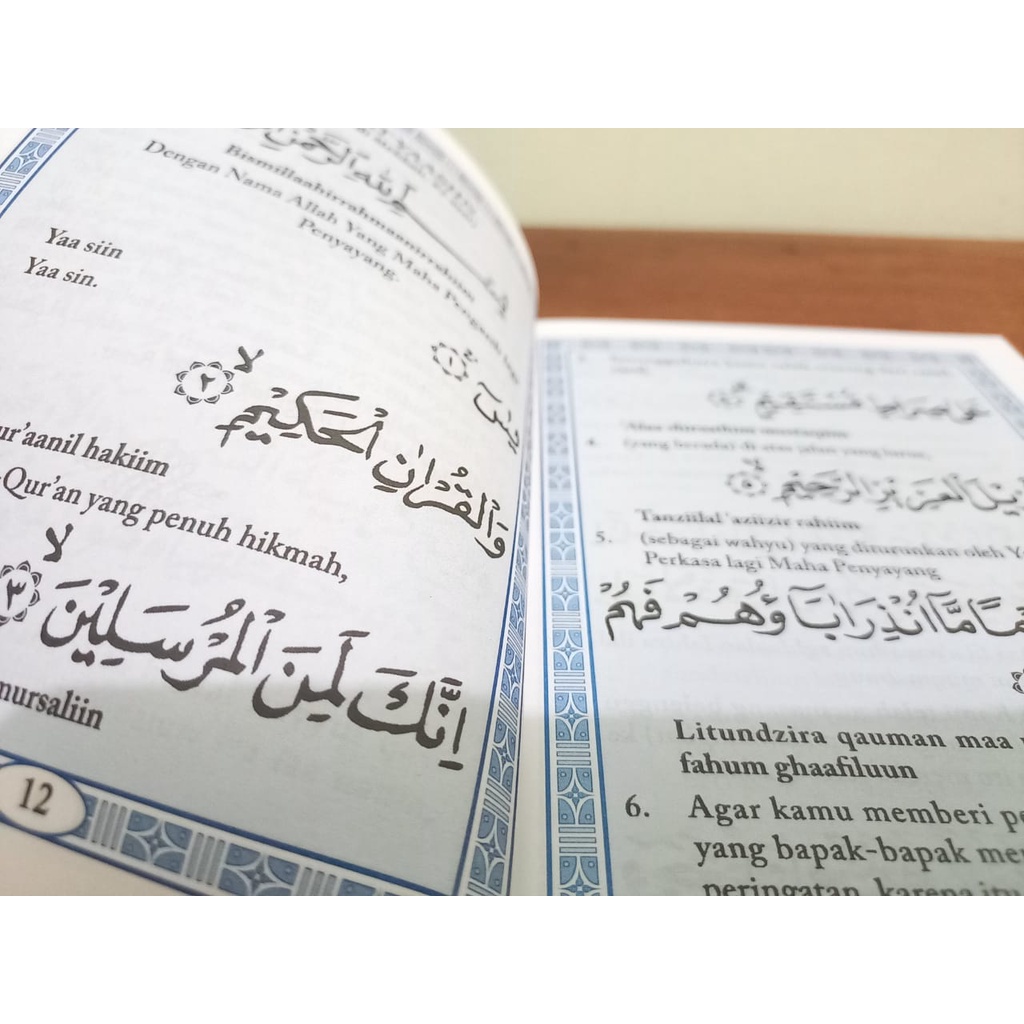 Bismillaahirrahmaanirrahiim
Dengan Nama Allah Yang Maha Pengasih lagi
Penyayang.
يٰسۤ ۝١
Yaa siin
Yaa sin.
وَالْقُرْاٰنِ الْحَكِيْمِۙ ۝٢
ur'aanil hakiim
-Qur'an yang penuh hikmah,
اِنَّكَ لَمِنَ الْمُرْسَلِيْنَۙ ۝٣
mursaliin
12
عَلٰى صِرَاطٍ مُّسْتَقِيْمٍ
4. (yang berada) di atas jalan yang lurus,
الْعَزِيْزِ الرَّحِيْمِۙ ۝٥
Tanziilal 'aziizir rahiim
5. (sebagai wahyu) yang diturunkan oleh
Perkasa lagi Maha Penyayang
مَّآ اُنْذِرَ اٰبَاۤؤُهُمْ فَهُمْ
Litundzira qauman maa
fahum ghaafiluun
6. Agar kamu memberi
yang bapak-bapak
peringatan, karena itu